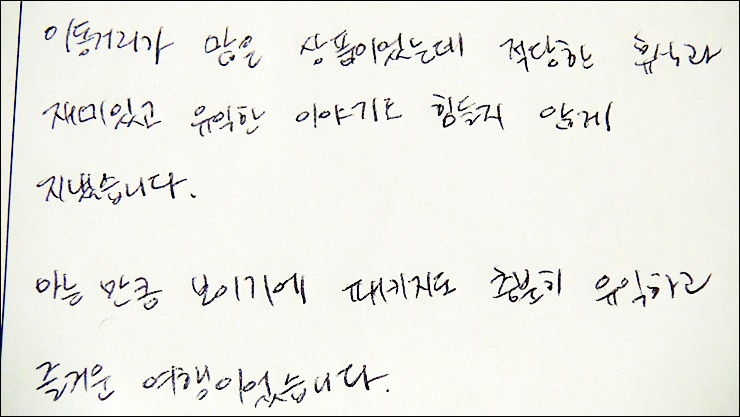 이동거리가 많은 상품이었는데 적당한 휴식과
재미있고 유익한 이야기로 힘들지 않게
지냈습니다.
아는 만큼 보이기에 패키지도 충분히 유익하고
즐거운 여행이었습니다.